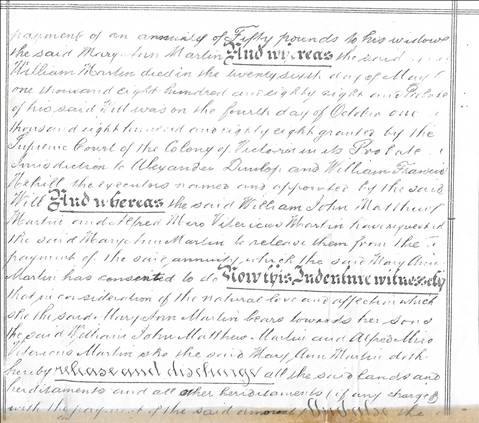 payment of an annuity of Fifty pounds to his widow
the said Mary Ann Martin And whereas the said
William Martin died in the twenty sixth day of May
one thousand eight hundred and eighty eight and Probate
of his said Will was on the fourth day of October one
thousand eight hundred and eighty eight granted by the
Supreme Court of the Colony of Victoria in its Probate
Jurisdiction to Alexander Dunlop and William Francis
the executors named and appointed by the said
Will And whereas the said William John Matthew
Martin and Alfred Miro Vitericus Martin have requested
the said Mary Ann Martin to release them from the
payment of the said annuity which the said Mary Ann
Martin has consented to do Now this Indenture witnesseth
that in consideration of the natural love and affection which
she the said Mary Ann Martin bears towards her sons
the said William John Matthew Martin and Alfred Miro
Vitericus Martin she the said Mary Ann Martin doth
hereby release and discharge all the said lands and
hereditaments and all other hereditaments (if any charged
with the payment of the said the